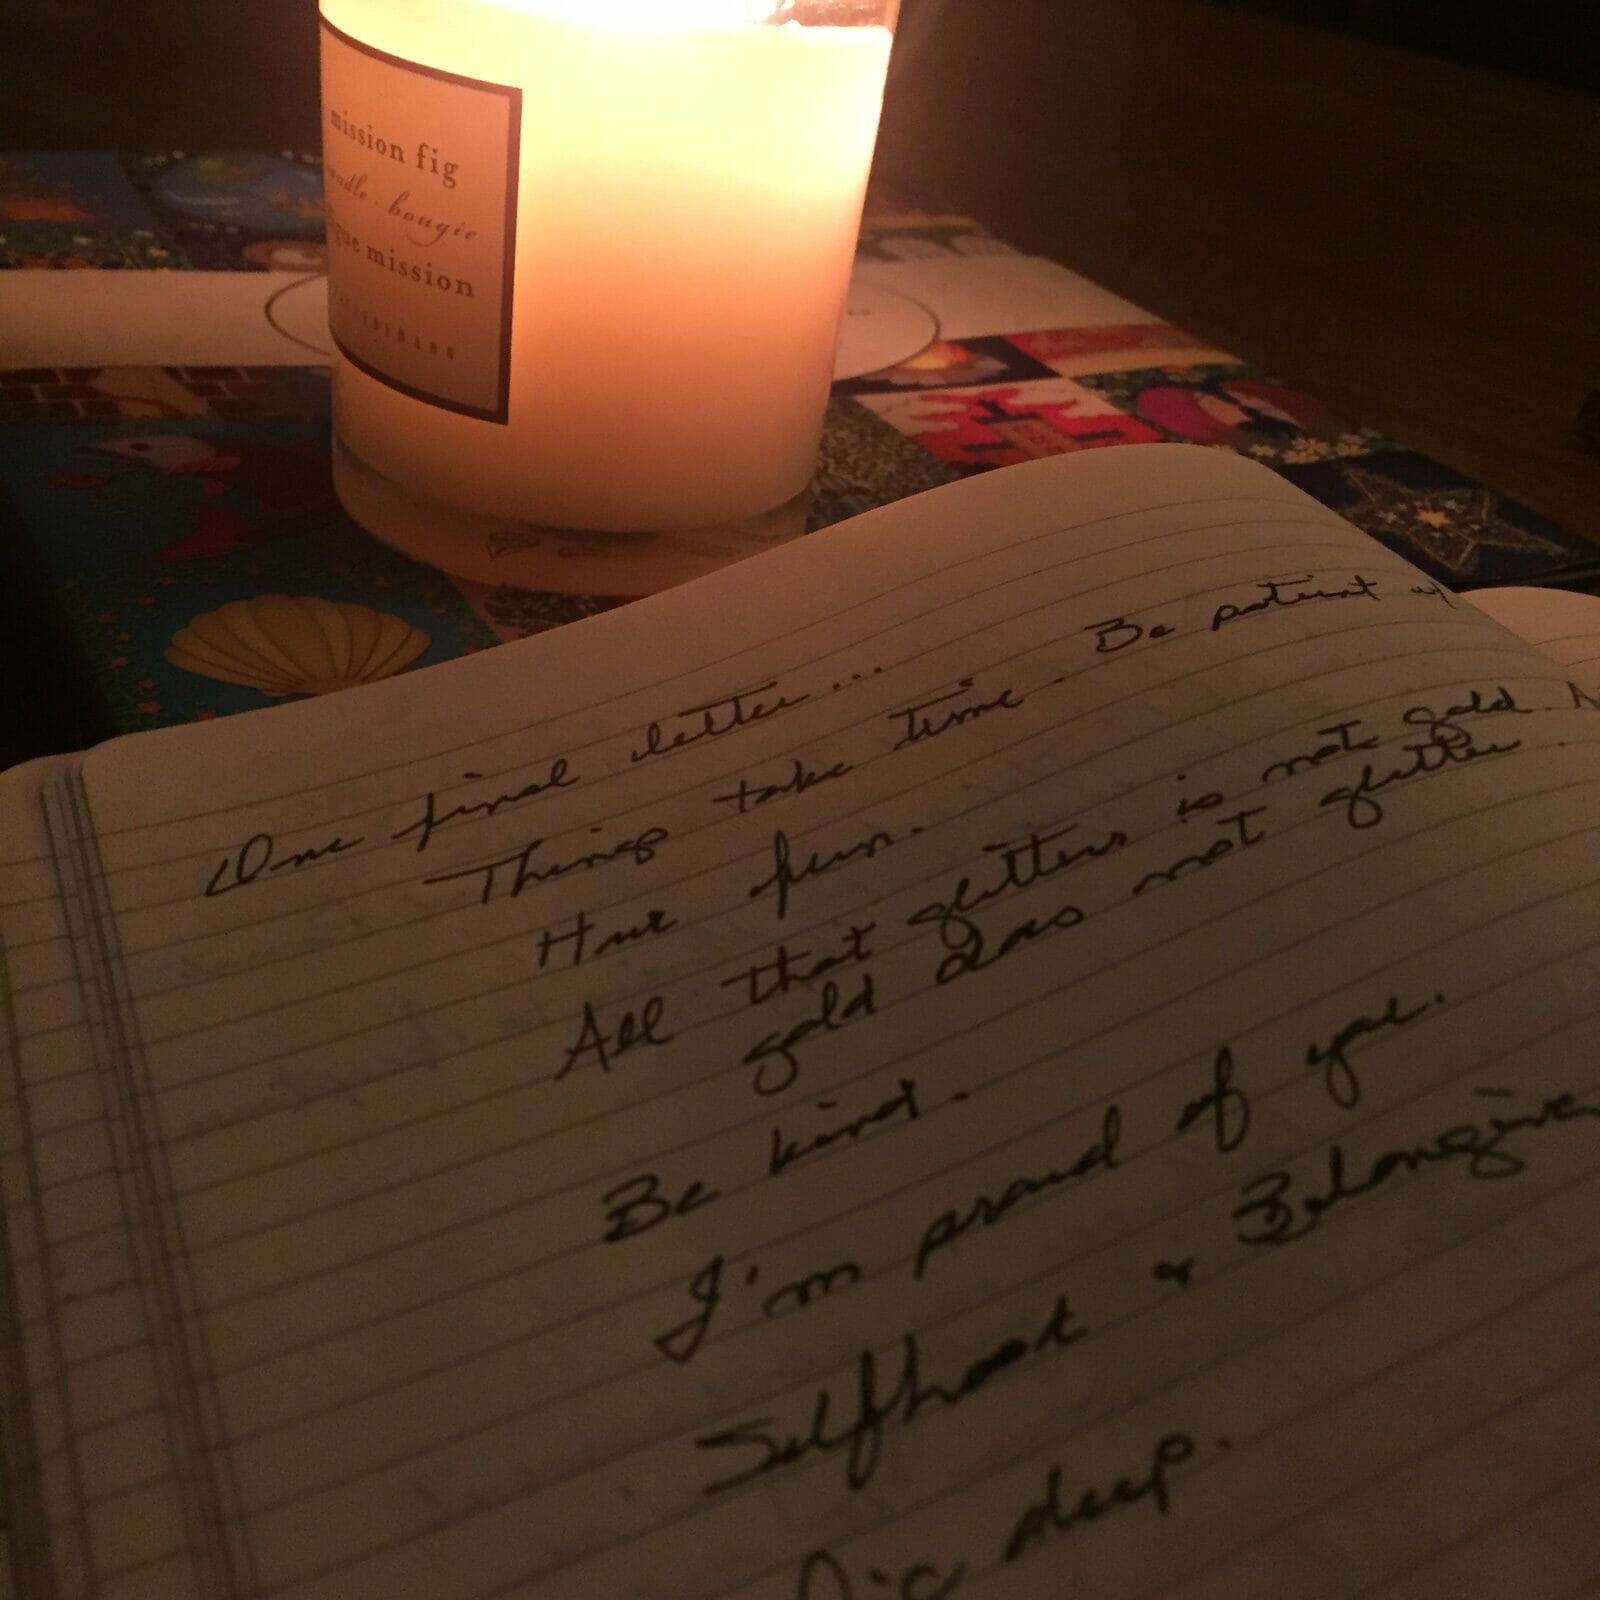 mission fig
bougie
mission
One final letter...
Things take time. Be patient w/
Have fun.
All that glitters is not gold.
gold does not glitter.
Be kind.
I'm proud of you.
Selfhood & Belonging
deep.